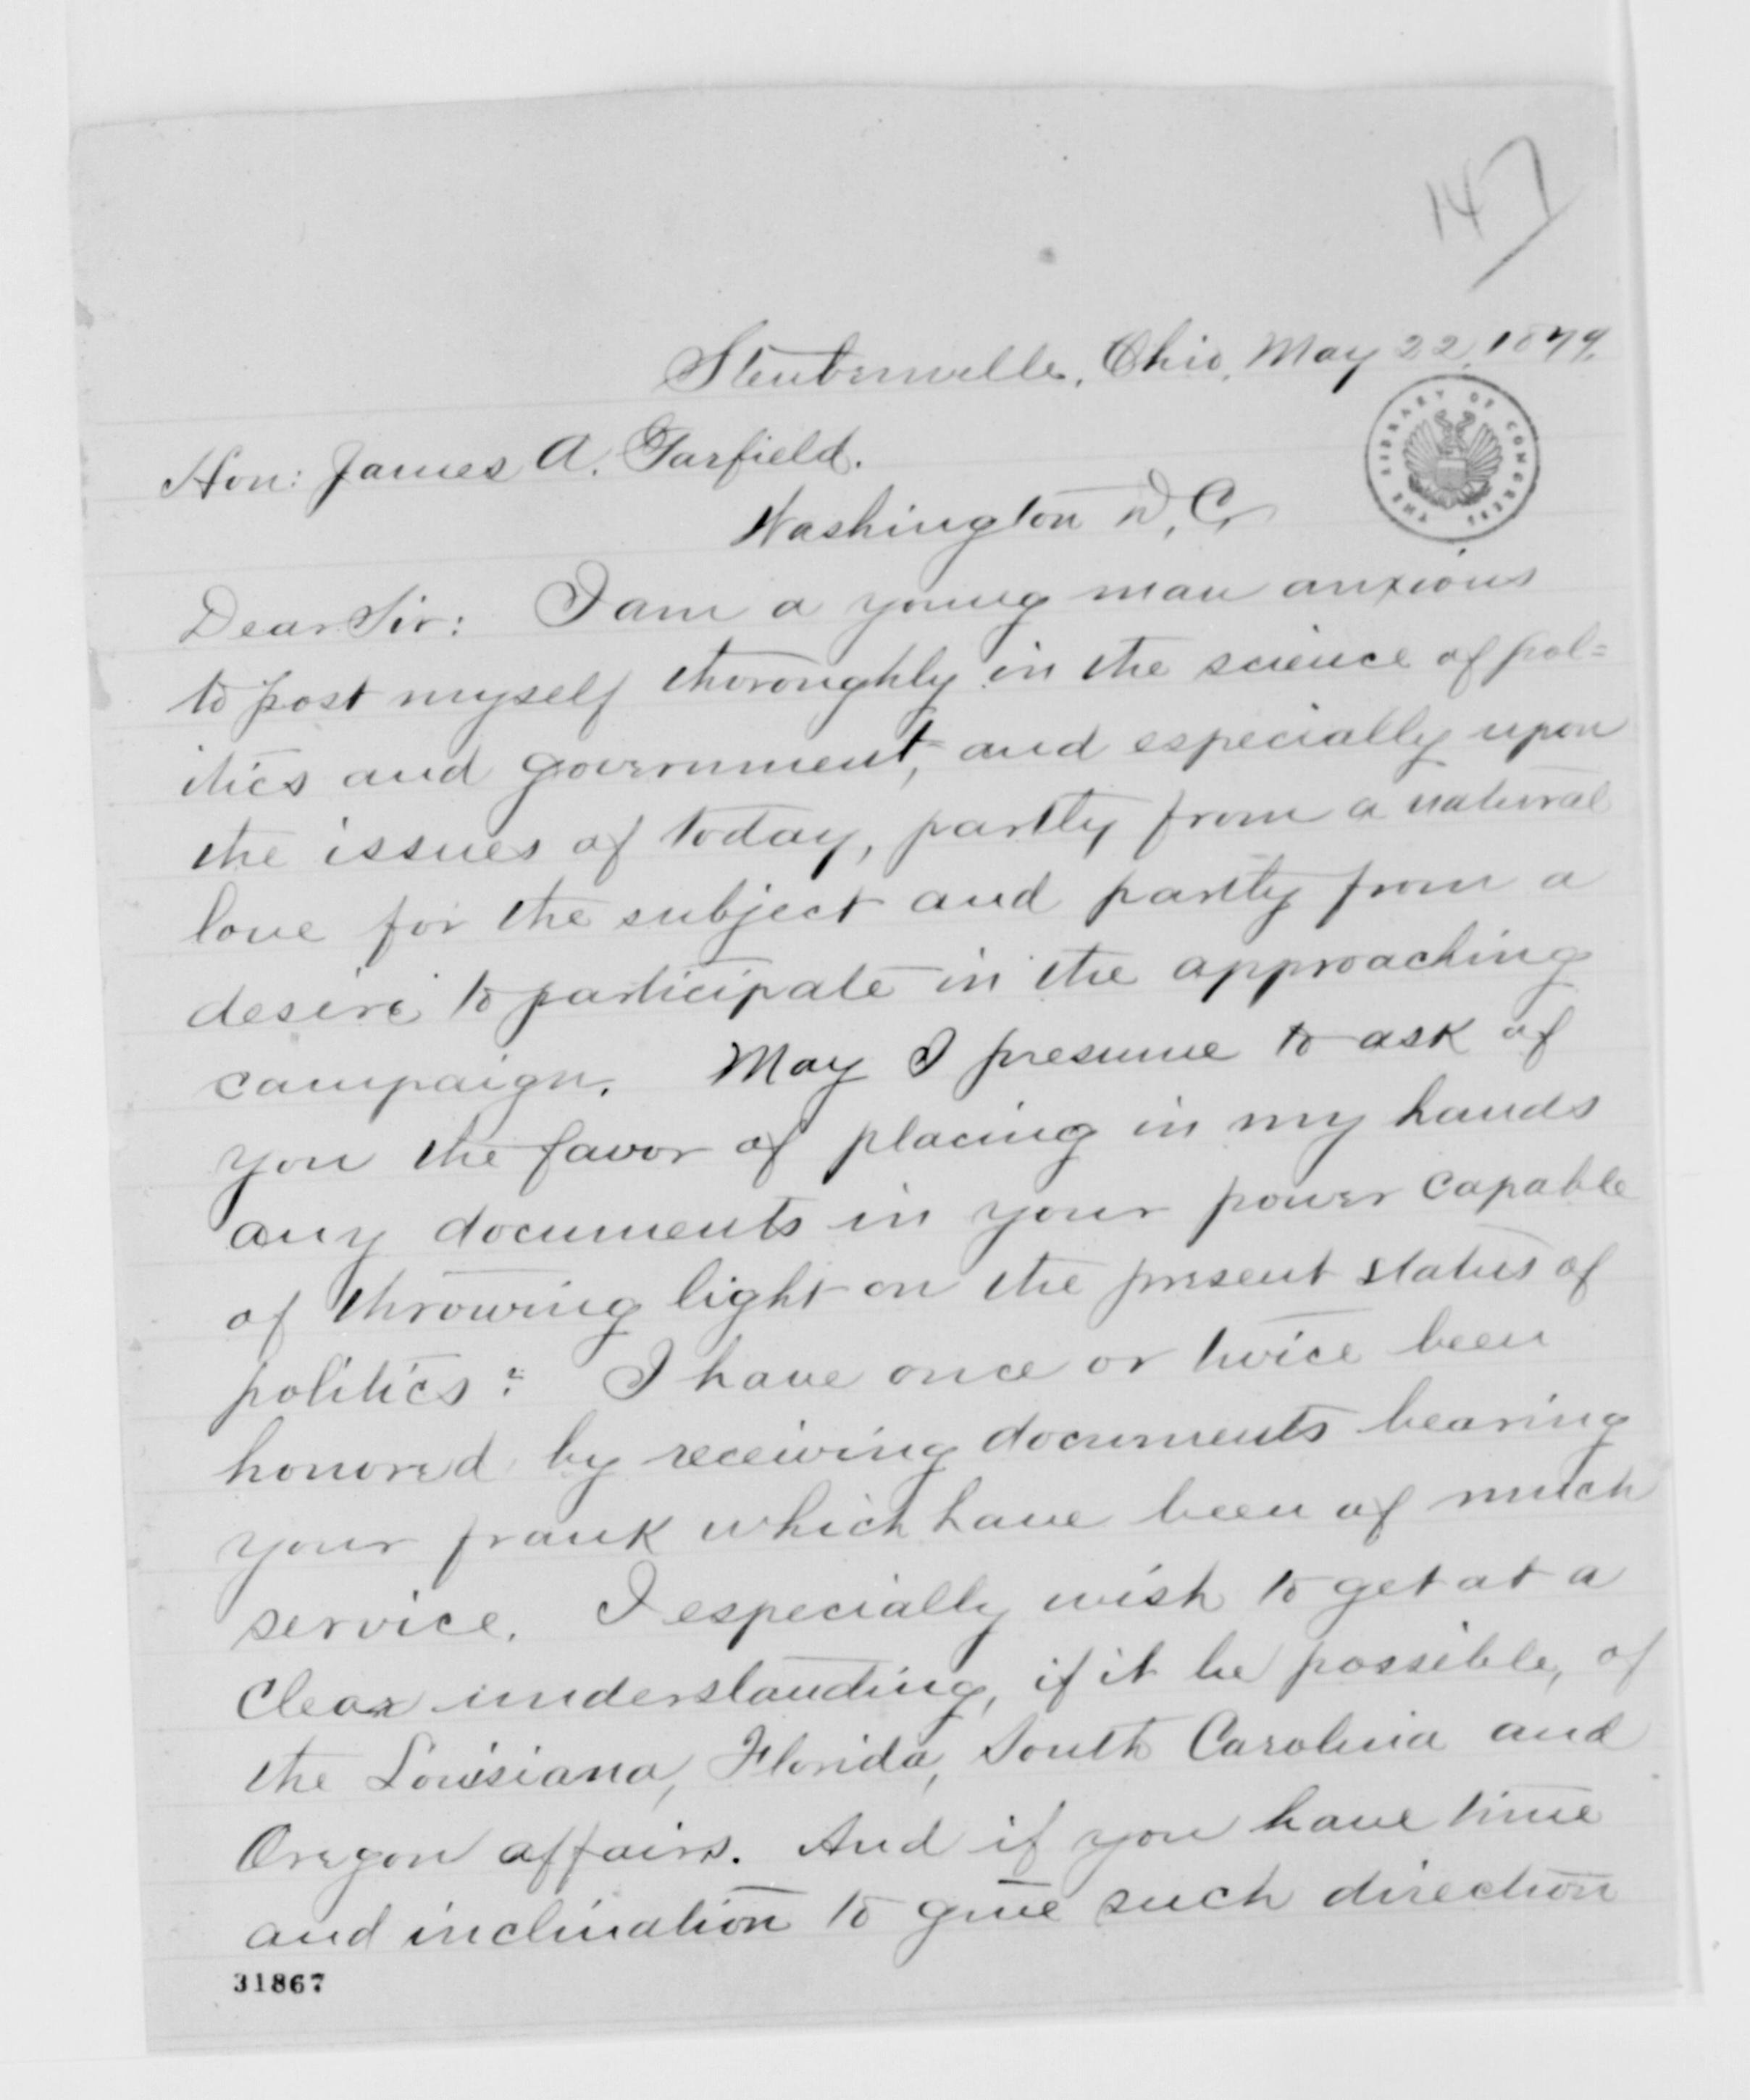 147
Steubenville, Ohio, May 22, 1879.
Hon: James A. Garfield.
Washington D.C.
THE LIBRARY OF CONGRESS
Dear Sir: I am a young man anxious
to post myself thoroughly in the science of pol=
itics and government, and especially upon
the issues of today, partly from a natural
love for the subject and partly from a
desire to participate in the approaching
campaign. May I presume to ask of
you the favor of placing in my hands
any documents in your power capable
of throwing light on the present status of
politics? I have once or twice been
honored by receiving documents bearing
your frank which have been of much
service. I especially wish to get at a
clear understanding, if it be possible, of
the Louisiana, Florida, South Carolina and
Oregon affairs. And if you have time
and inclination to give such direction
31867